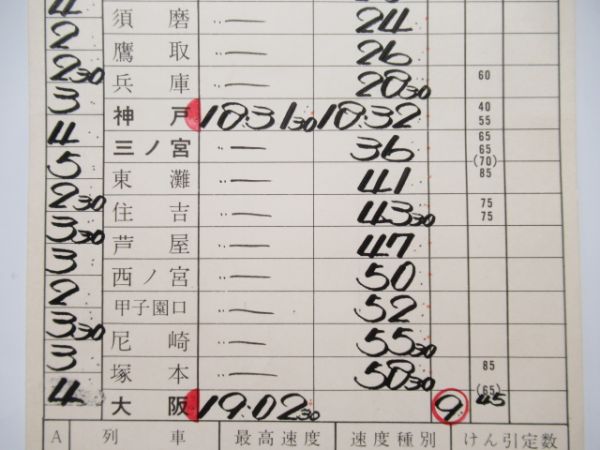 4 須磨 24
2 鷹取 26
2 30 兵庫 28 30 60
3 神戸 18.31 30 18.32 40 55
4 三ノ宮 36 65 65 (70)
5 東灘 41 85
2 30 住吉 43 30 75 75
3 30 芦屋 47
3 西ノ宮 50
2 甲子園口 52
3 30 尼崎 55 30
3 塚本 58 30 85 (65)
4 大阪 19.02 30 9 45
A 列車 最高速度 速度種別 けん引定数